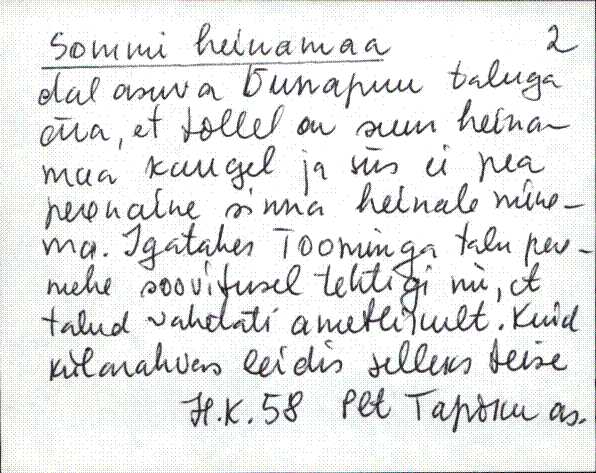 Sommi heinamaa 2
dal asuva Õunapuu taluga
ära, et tollel on suur heina-
maa kaugel ja siis ei pea
perenaine sinna heinale mine-
ma. Igatahes Toominga talu pere-
mehe soovitusel tehtigi nii, et
talud vahetati ametlikult. Kuid
külarahvas leidis selleks teise
H.K. 58 Plt Tapiku as.